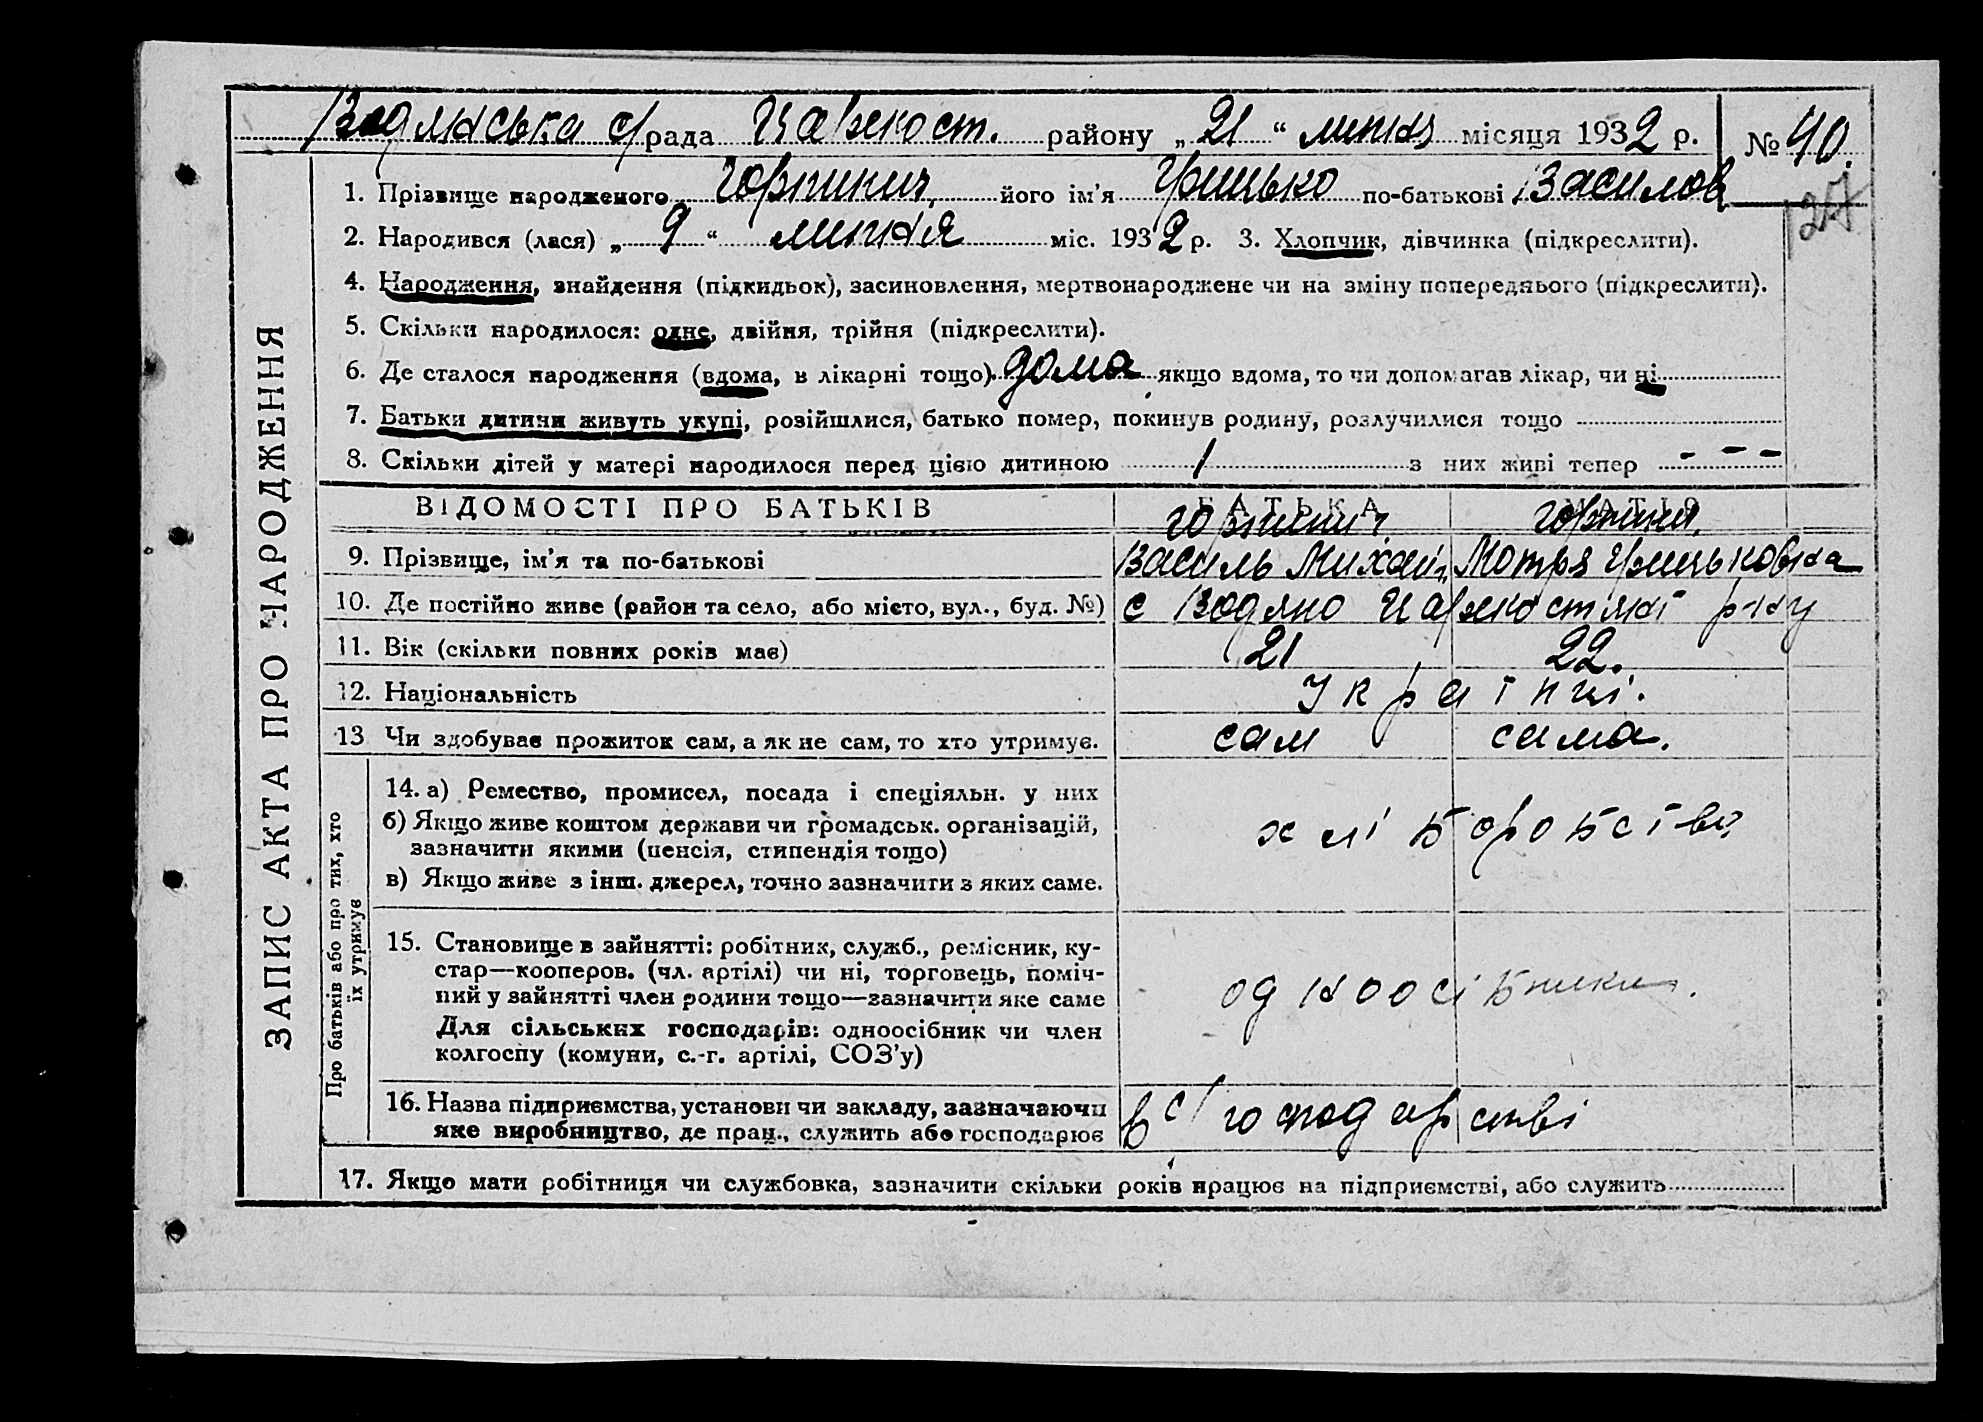 Водянська с/рада Царекост. району „ 21 “ липня місяця 1932 р. № 40.
127
ЗАПИС АКТА ПРО НАРОДЖЕННЯ
1. Прізвище народженого його ім'я Грицько по-батькові Василов
2. Народився (лася) „ 9 “ липня міс. 1932 р. 3. Хлопчик, дівчинка (підкреслити).
4. Народження, знайдення (підкидьок), засиновлення, мертвонароджене чи на зміну попереднього (підкреслити).
5. Скільки народилося: одне, двійня, трійня (підкреслити).
6. Де сталося народження (вдома, в лікарні тощо) дома якщо вдома, то чи допомагав лікар, чи ні
7. Батьки дитини живуть укупі, розійшлися, батько помер, покинув родину, розлучилися тощо
8. Скільки дітей у матері народилося перед цією дитиною 1 з них живі тепер - - -
ВІДОМОСТІ ПРО БАТЬКІВ БАТЬКА МАТІР
9. Прізвище, ім'я та по-батькові Василь Михай. Мотря Грицьковна
10. Де постійно живе (район та село, або місто, вул., буд. №) с Водяно р-ну
11. Вік (скільки повних років має) 21 22.
12. Національність Українці.
13 Чи здобуває прожиток сам, а як не сам, то хто утримує. сам сама.
Про батьків або про тих, хто їх утримує
14. а) Ремество, промисел, посада і спеціяльн. у них
б) Якщо живе коштом держави чи громадськ. організацій, хліборобство
зазначити якими (пенсія, стипендія тощо)
в) Якщо живе з інш. джерел, точно зазначити з яких саме.
15. Становище в зайнятті: робітник, служб., ремісник, ку-
стар—кооперов. (чл. артілі) чи ні, торговець, поміч-
ний у зайнятті член родини тощо—зазначити яке саме одноосібники.
Для сільських господарів: одноосібник чи член
колгоспу (комуни, с.-г. артілі, СОЗ'у)
16. Назва підприємства, установи чи закладу, зазначаючи в с/господарстві
яке виробництво, де прац., служить або господарює
17. Якщо мати робітниця чи службовка, зазначити скільки років працює на підприємстві, або служить